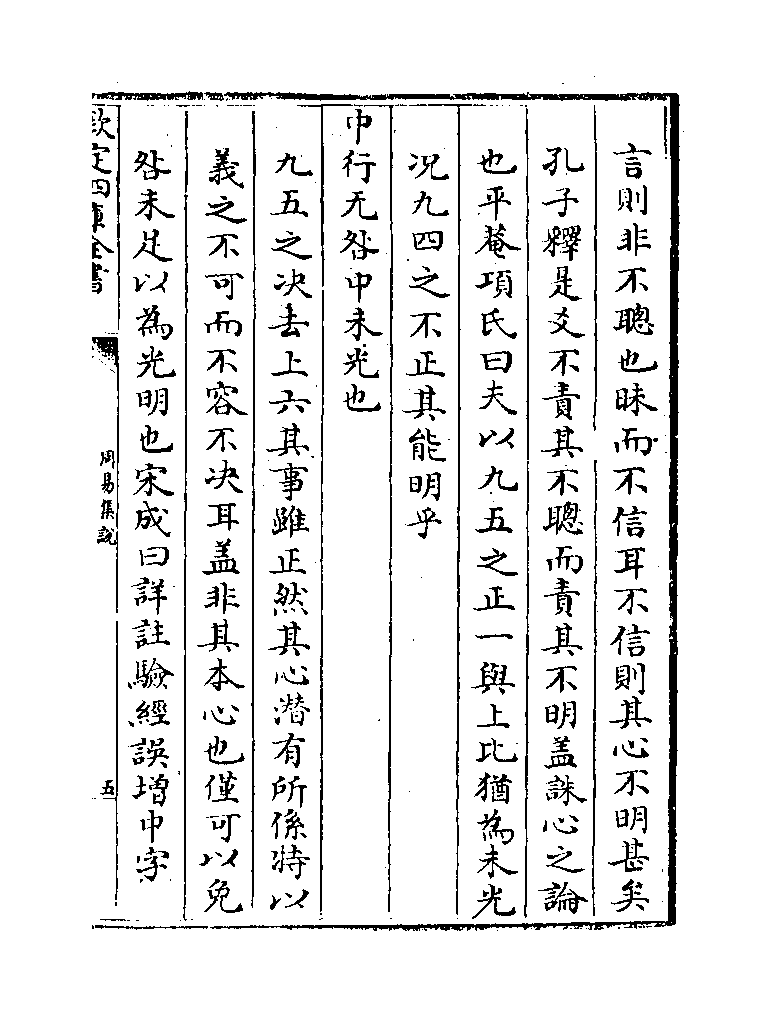 言則非不聰也昧而不信耳不信則其心不明甚矣
孔子釋是爻不責其不聰而責其不明盖誅心之論
也平菴項氏曰夫以九五之正一與上比猶為未光
况九四之不正其能明乎
中行无咎中未光也
九五之决去上六其事雖正然其心潜有所係特以
義之不可而不容不决耳盖非其本心也僅可以免
咎未足以為光明也宋成曰詳註驗經誤增中字
欽定四庫全書
周易集說
五